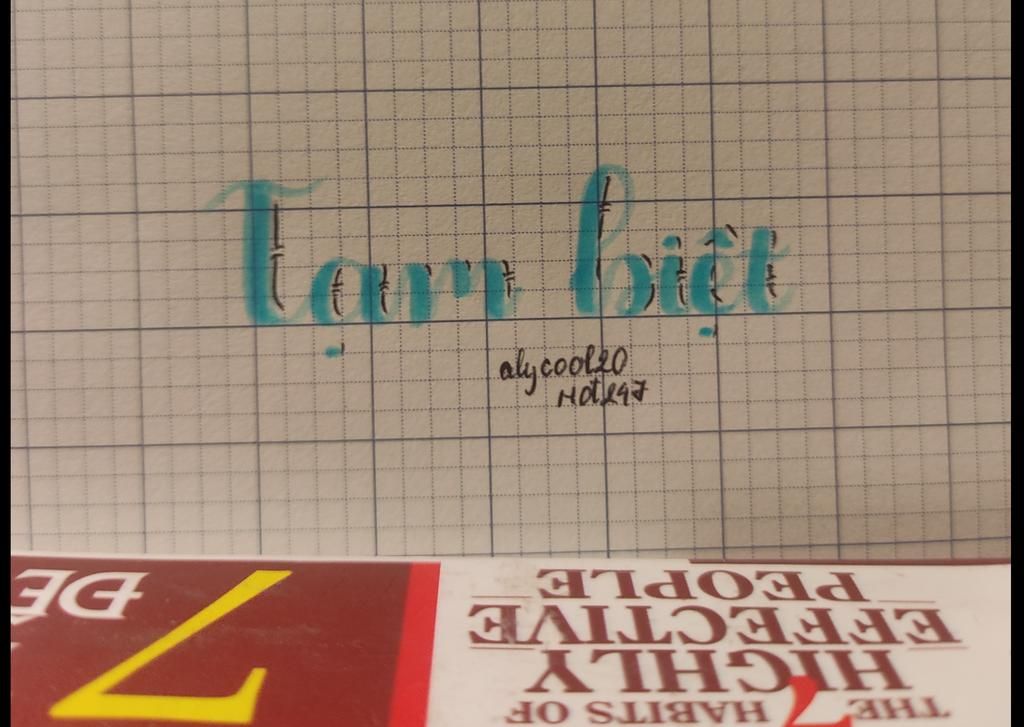 Tạm biệt
alycool20
Hd247
THE 7 HABITS OF
HIGHLY
EFFECTIVE
PEOPLE
7